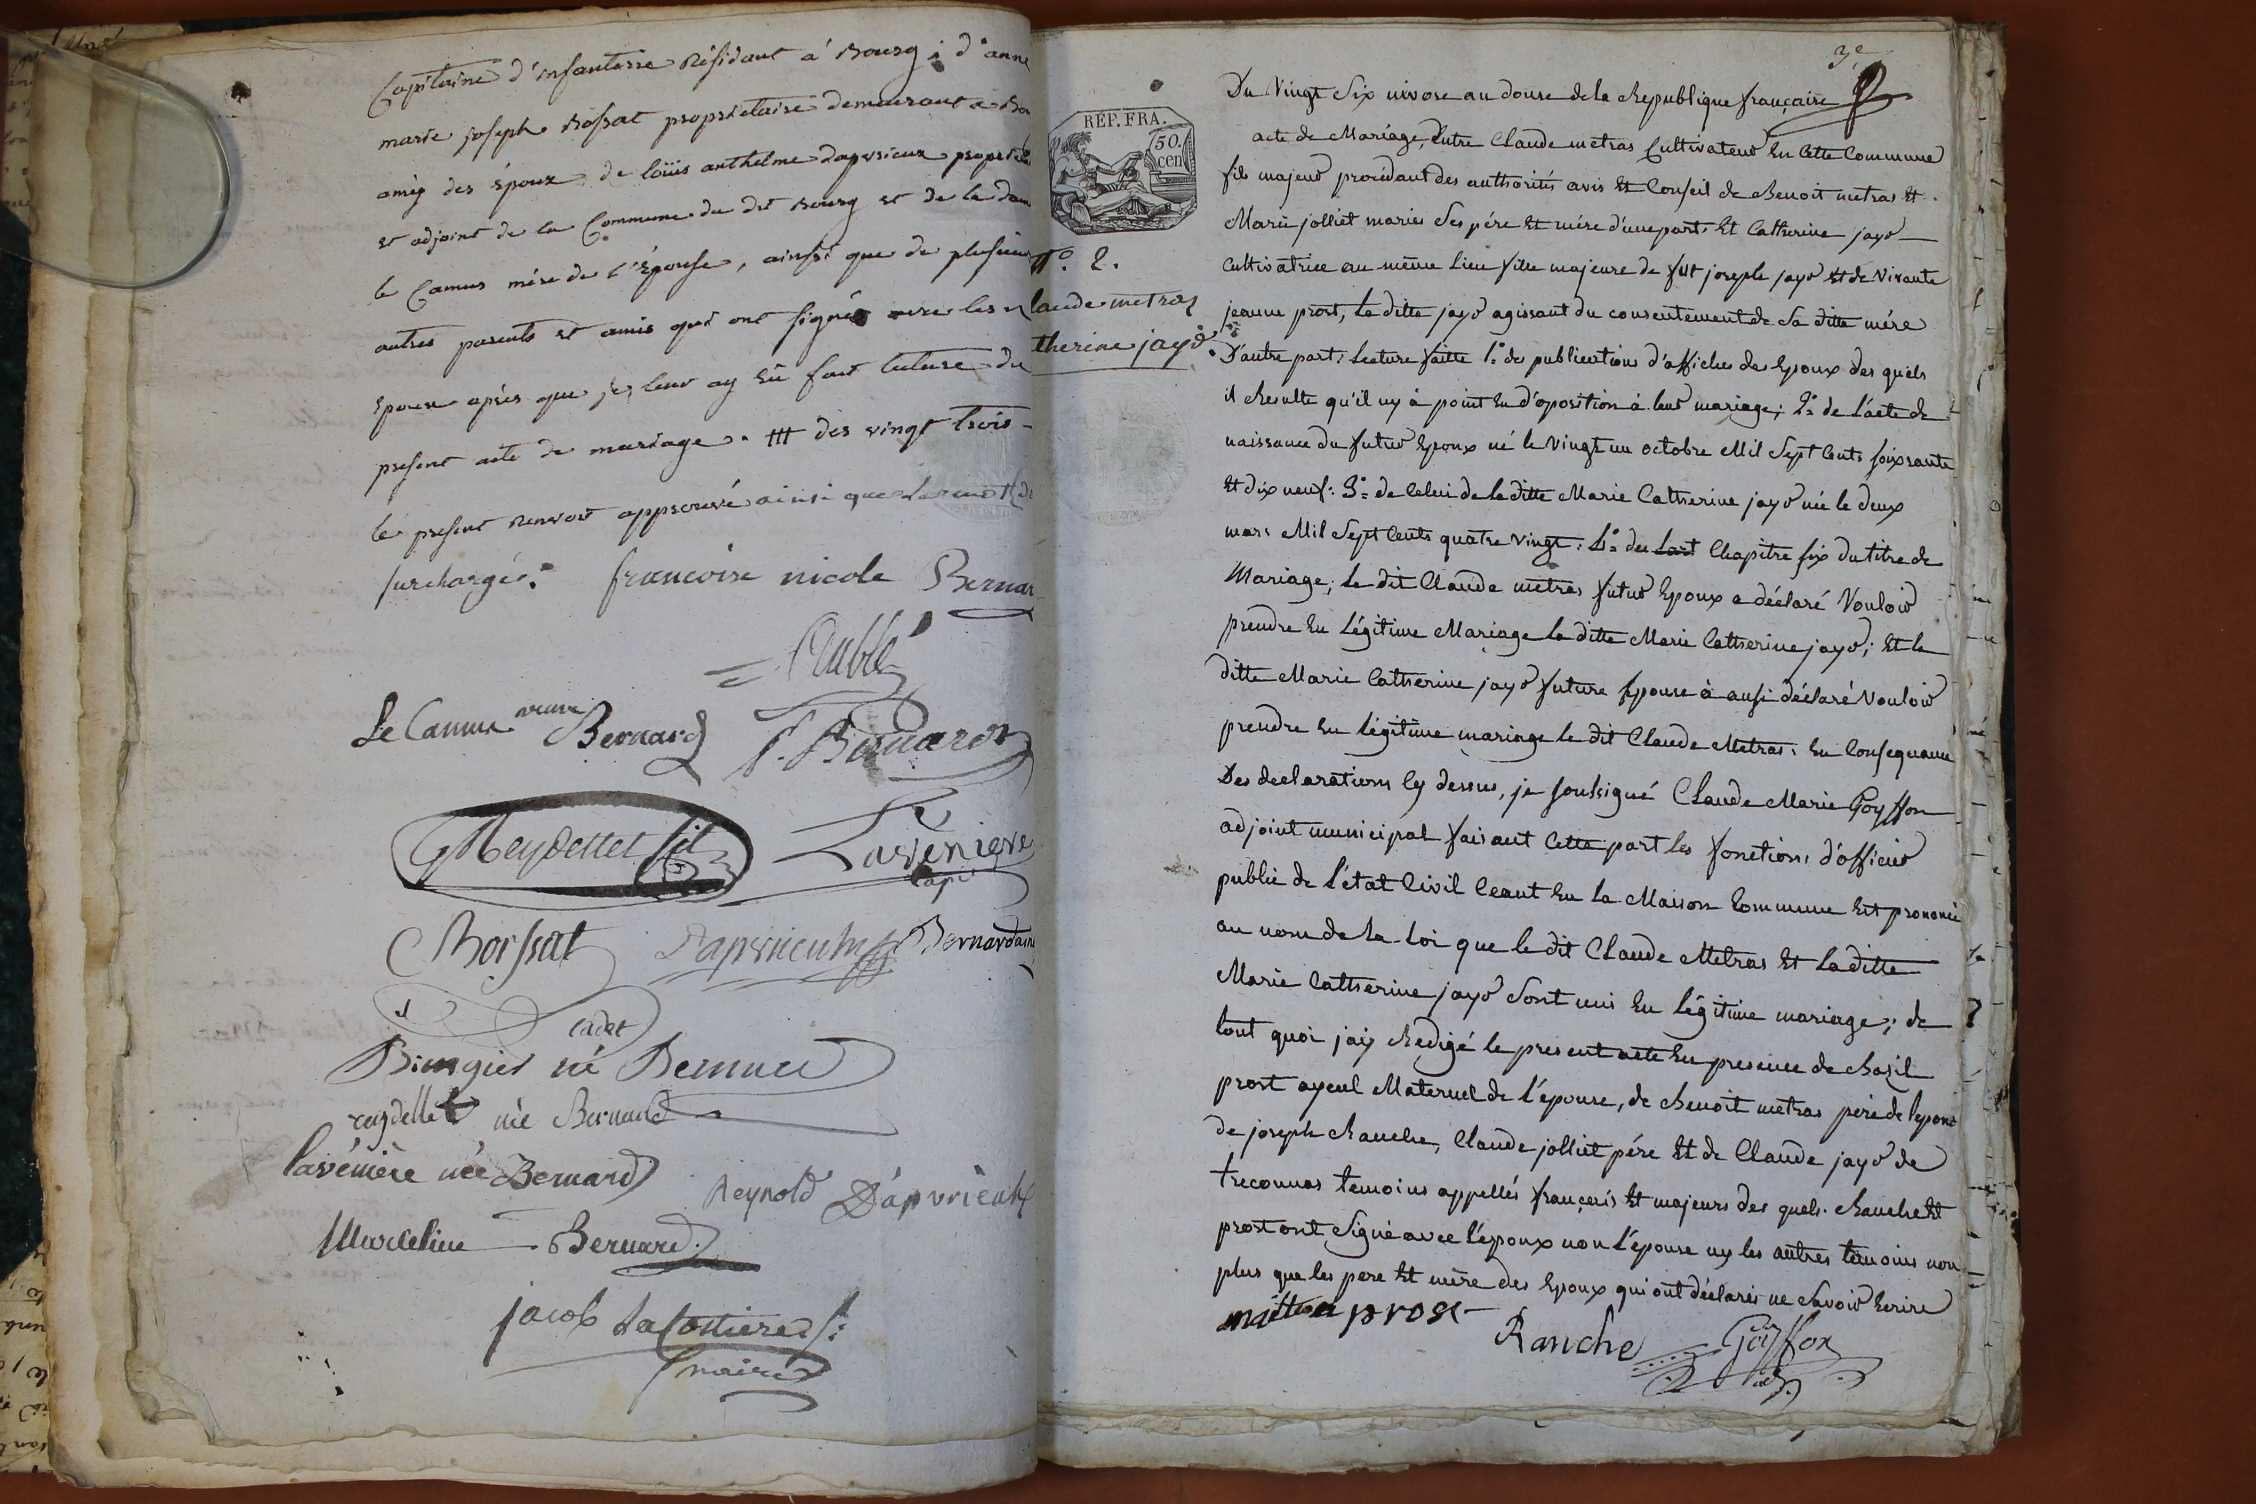 Capitaine d'infanterie Résidant á Bourg; d'anne
marie joseph Bossat proprietaire demeurant a Bou
amis des époux de loüis anthelme dapvrieux propriet
et adjoint de la Commune du dit Bourg et de la dam
le Camus mére de l'Epouse, ainssi que de plusieu
autres parents et amis qui ont signés avec les
Epoux aprés que je leur ay eü fait lecture du
present acte de mariage. ttt dix vingt trois
le present renvoit approuvé ainsi que le mot de
surchargé. francoise nicole Bernar
Aublé
Le Camus veuve Bernard f. Bernard
Reydellet fils Lavenière
cap.e
Bossat Dapvrieulx Bernard ainé
cadet
né Bernard
reydellet née Bernard
lavénière née Bernard Reynold D'apvrieulx
Marceline Bernard
jacob Lacottiere f:
maire
3.e
Du Vingt Six nivose an douze de la Republique française
REP. FRA.
50.
cen
acte de Mariage, Entre Claude metras Cultivateur En Cette Commune
fils majeur procédant des authorités avis Et Conseil de Benoit metras Et
Marie jolliet mariés Ses pére Et mére d'une part; Et Catherine jayr
N.o 2.
Cultivatrice au même Lieu fille majeure de fut joseph jayr Et de Vivante
laude metras
jeanne prost, la ditte jayr agissant du consentement de Sa ditte mére
therine jayr.
D'autre part; lecture faitte 1.o des publications d'affiches des Epoux des quels
il Resulte qu'il ny à point Eu d'oposition á leur mariage; 2.o de l'acte de
naissance du futur Epoux né le Vingt un octobre Mil Sept Cents soixsante
Et dix neuf: 3.o de Celui de la ditte Marie Catherine jayr née le deux
mars Mil Sept Cents quatre Vingt: 4.o du Chapitre six du titre de
Mariage; le dit Claude metras futur Epoux a déclaré Vouloir
prendre En Légitime Mariage la ditte Marie Catherine jayr; Et la
ditte Marie Catherine jayr future Epouse à ausi déclaré Vouloir
prendre En légitime mariage le dit Claude Metras; En Consequance
Des declarations Cy dessus, je soussigné Claude Marie Goyffon
adjoint municipal faisant Cette part les fonctions d'officier
public de l'état Civil Ceant En la Maison Commune Eit prononcé
au nom de la loi que le dit Claude Metras Et la ditte
Marie Catherine jayr Sont unis En légitime mariage; de
tout quoi j'aij Redigé le present acte En presence de Bazil
prost ayeul Maternel de l'épouse, de Benoit metras pere de lepoux
de joseph Ranche, Claude jolliet pére Et de Claude jayr de
treconnas temoins appellés français Et majeurs des quels Ranche Et
prost ont Signé avec l'époux non l'épouse ny les autres temoins non
plus que les pere Et mére des Epoux qui ont déclarés ne Savoir Ecrire
prost
Ranche Goÿffon